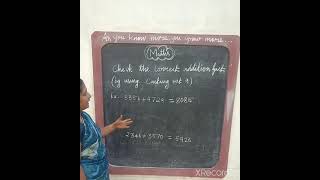 As you know more, you grow more...
Maths
Check the correct addition fact
(by using Casting out 9)
Ex:- 3356+4729 = 8085
2346+3570 = 5926
XRecorder